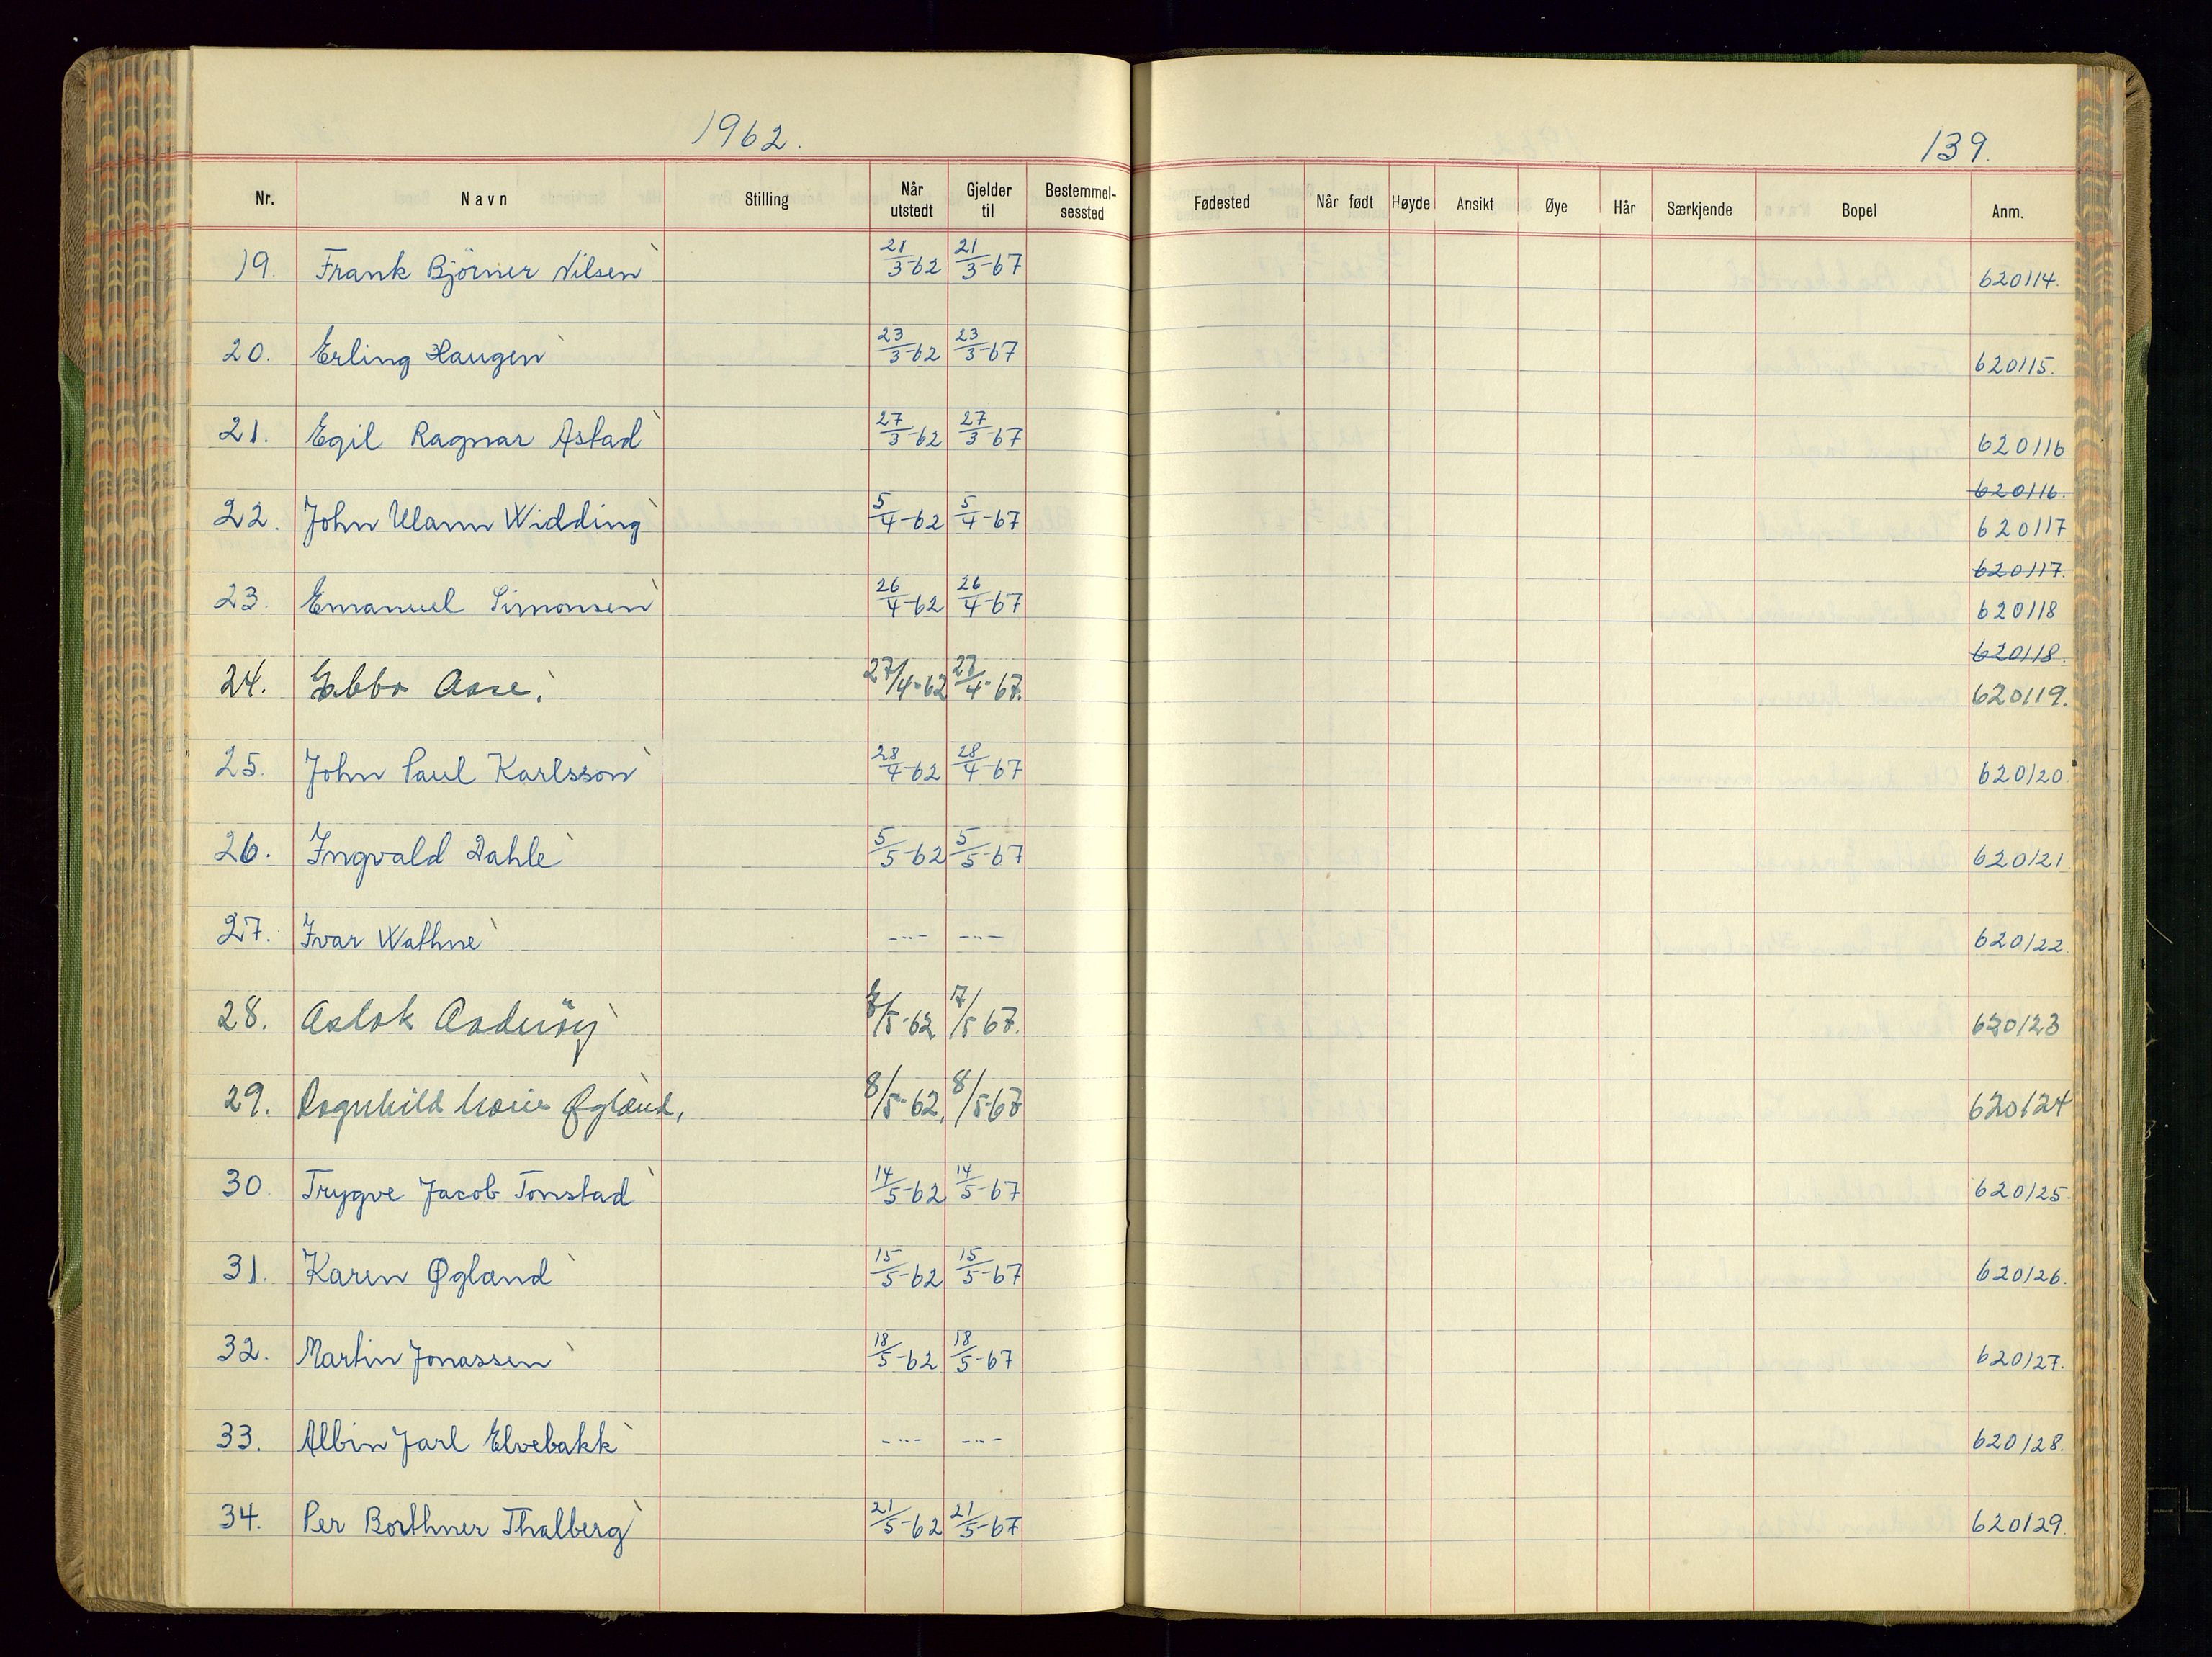 1962.
139.
Nr. Navn Stilling Når utstedt Gjelder til Bestemmel-sessted Fødested Når født Høyde Ansikt Øye Hår Særkjende Bopel Anm.
19. Frank Björner Nilsen 21/3-62 21/3-67 620114.
20. Erling Haugen 23/3-62 23/3-67 620115.
21. Egil Ragnar Astad 27/3-62 27/3-67 620116
620116.
22. John Mann Widding 5/4-62 5/4-67 620117
620117.
23. Emanuel Simonsen 26/4-62 26/4-67 620118
620118.
24. Ebba Aase. 27/4-62 27/4-67. 620119.
25. John Paul Karlsson 28/4-62 28/4-67 620120.
26. Ingvald Dahle 5/5-62 5/5-67 620121.
27. Ivar Wathne -"- -"- 620122.
28. Aslak Anderöy 7/5-62 7/5 67. 620123
29. Ragnhild Marie Øgland, 8/5-62, 8/5-67 620124
30. Trygve Jacob Tonstad 14/5-62 14/5-67 620125.
31. Karen Øgland 15/5-62 15/5-67 620126.
32. Martin Jonassen 18/5-62 18/5-67 620127.
33. Albin Jarl Elvebakk -"- -"- 620128.
34. Per Borthner Thalberg 21/5-62 21/5-67 620129.